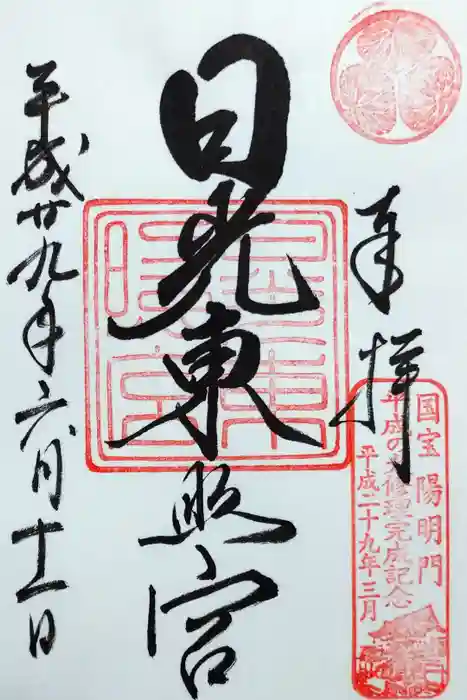 奉拝
国宝 陽明門
平成の大修理完成記念
平成二十九年三月
日光東照宮
平成廿九年六月十一日